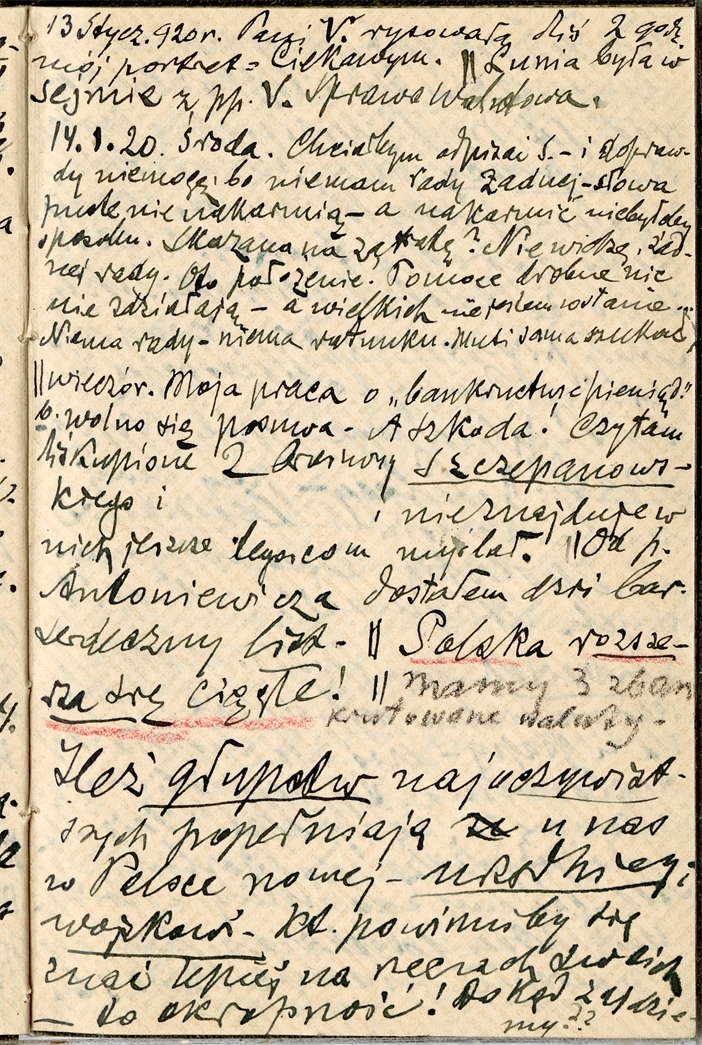 13 Stycz. 920 r. Pani V. rysowała dziś 2 godz.
mój portret = Ciekawym. || Lunia była w
sejmie z pp. V. Sprawa walutowa.
14.1.20. Środa. Chciałbym odpisać S. - i dopraw-
dy niemogę, bo niemam rady żadnej - słowa
puste nie nakarmią - a nakarmić niebyłoby
sposobu. Skazana na zagładę? Nie widzę, żad-
nej rady. Oto położenie. Pomoce drobne nic
nie zdziałają - a wielkich nie jestem wstanie..
Niema rady - niema ratunku. Musi sama szukać,
|| wieczór. Moja praca o „bankructwie pieniądz."
b. wolno się posuwa - A szkoda! Czytam
kupione 2 broszury Szczepanows-
kiego i
i nieznajduję w
nich jeszcze tego co myślał. || Od p.
Antoniewicza dostałem dziś bar.
serdeczny list - || Polska rozsze-
rza się ciągle! || Mamy 3 zban
krutowane waluty -
Ileż głupstw najoczywist-
szych popełniają u nas
w Polsce nowej -
wojskowi - kt. powinniby się
znać lepiej na rzeczach swoich
- to okropność! Dokąd zajdzie-
my??